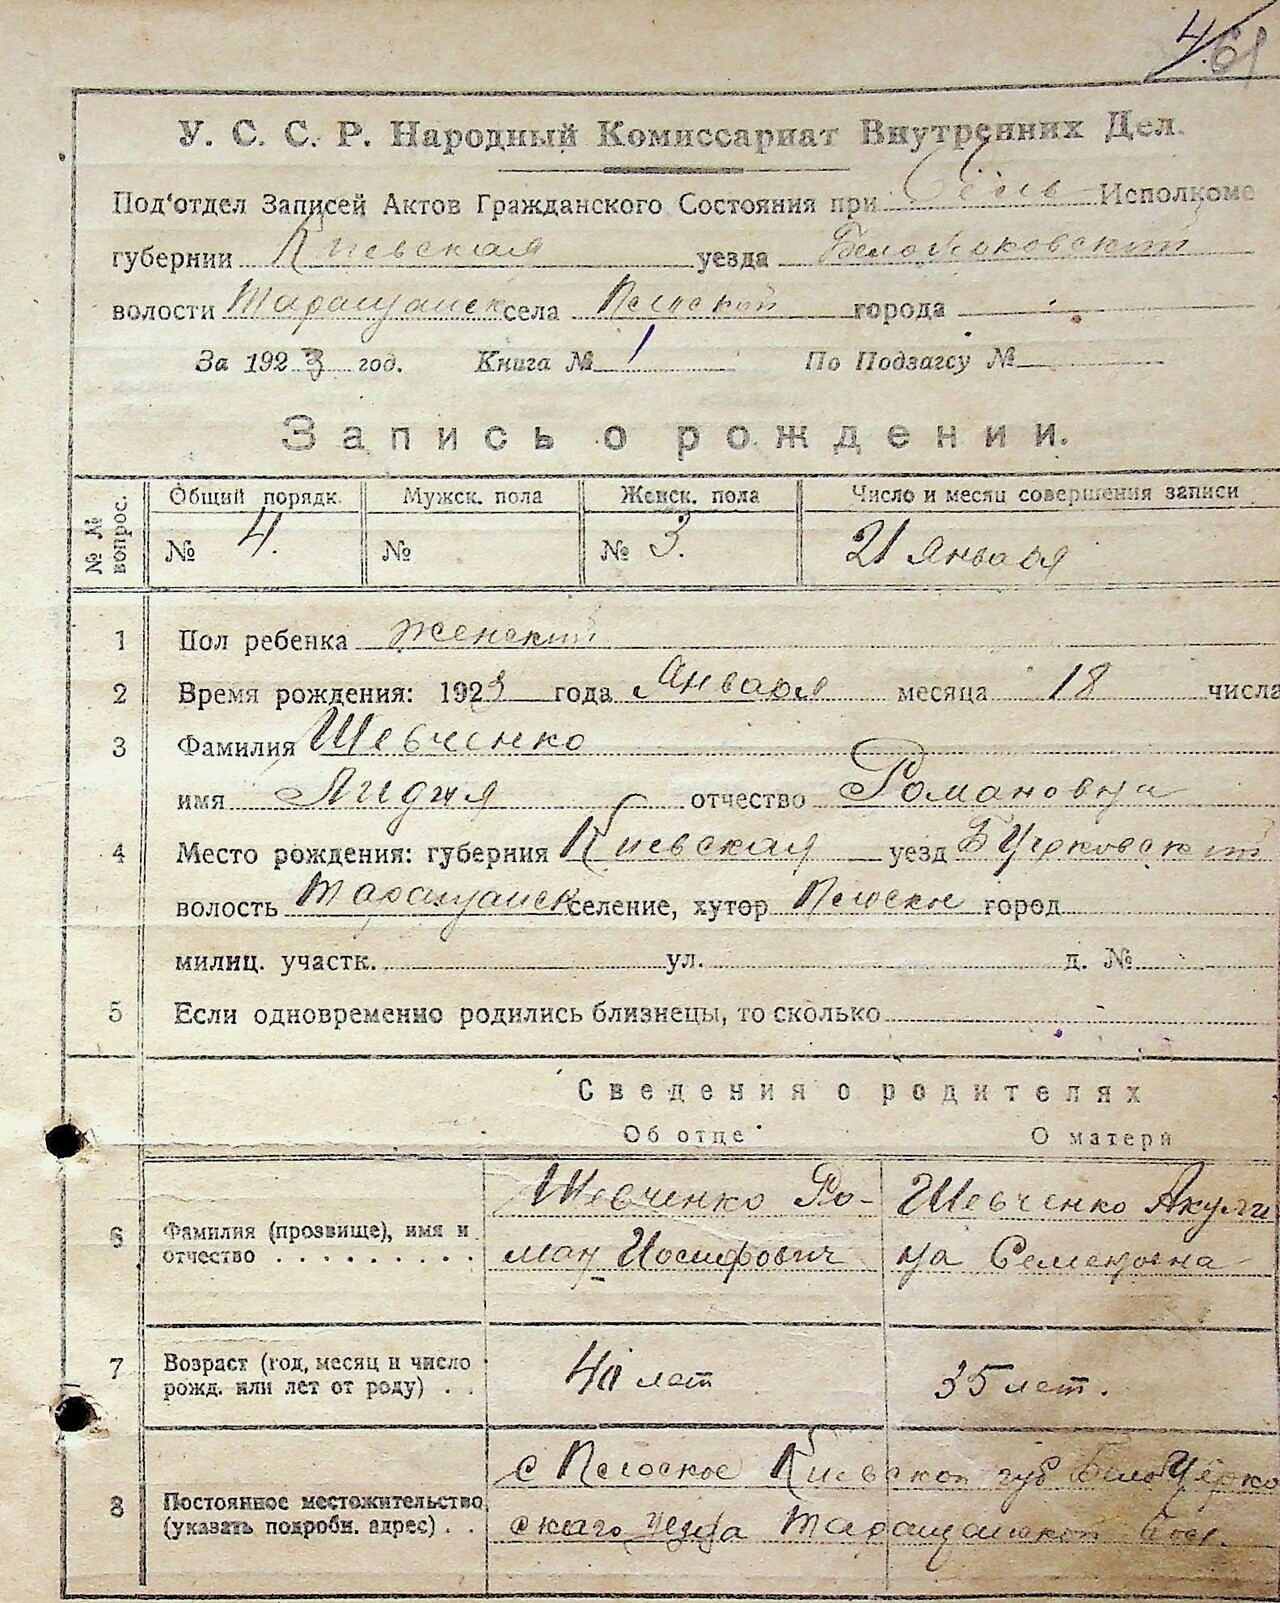 4. 61
У. С. С. Р. Народный Комиссариат Внутренних Дел.
Под'отдел Записей Актов Гражданского Состояния при Исполкоме
губернии Киевская уезда Белоцерковский
волости Таращанск села города
За 1923 год. Книга № 1 По Подзагсу №
Запись о рождении.
№ № вопрос. Общий порядк. Мужск. пола Женск. пола Число и месяц совершения записи
№ 4. № № 3. 21 Января
1 Пол ребенка Женский
2 Время рождения: 1923 года Января месяца 18 числа
3 Фамилия Шевченко
имя Лидия отчество Романовна
4 Место рождения: губерния Киевская уезд Б Церковский
волость Таращанск селение, хутор город
милиц. участк. ул. д. №
5 Если одновременно родились близнецы, то сколько
Сведения о родителях
Об отце О матери
6 Фамилия (прозвище), имя и отчество . . . . . . . . .
Шевченко Ро-
ман Иосифович
Шевченко Акули
на Семеновна
7 Возраст (год, месяц и число рожд. или лет от роду) . .
40 лет
35 лет.
8 Постоянное местожительство (указать подробн. адрес) . .
с Киевской губ Белоцерко
ского уезда Таращанской вол.